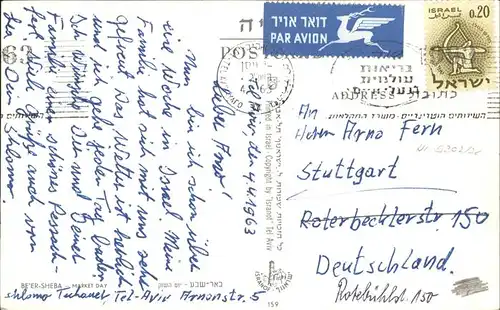 דואר אויר
PAR AVION
ISRAEL
0.20
ישראל
POST
ADDRESS
כתובת
בריאות
עולמית
Tel Aviv den 4.4.1963
Lieber Arno!
Nun bin ich schon über
eine Woche in Israel. Meine
Familie hat sich mit uns sehr
gefreut. Das Wetter ist herrlich
und ich gehe jeden Tag baden.
Ich wünsche Dir und Deiner
Familie einen schönen Pessach-
fest. Viele Grüße auch von
Shlomo.
An
Herrn Arno Fern
Stuttgart
Roterbecklerstr. 150
Deutschland.
Rotebühlst. 150
BE'ER-SHEBA — MARKET DAY
באר-שבע - יום השוק
Shlomo
Tel-Aviv Arnonstr. 5
Printed in Israel Copyright by "Isranof" Tel Aviv
159